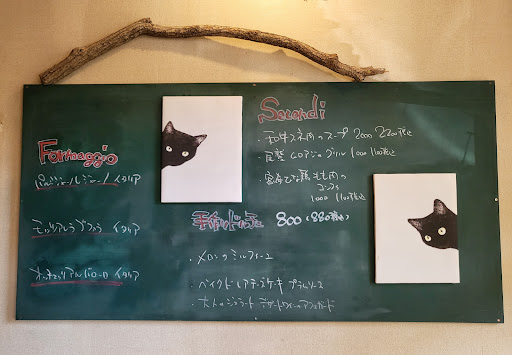 Formaggio
パルミジャーノレジャーノ イタリア
モッツァレラ ブッファラ イタリア
イタリア
Secondi
・和牛スネ肉のスープ 2000 2200税込
のグリル 1000 1100税込
・骨付き鶏もも肉の
コンフィ
1000 1100税込
手作りドルチェ 800 (880税込)
・メロンのミルフィーユ
・ベイクドレアチーズケーキ プラムソース
・大人のジェラート デザートワインのアフォガード